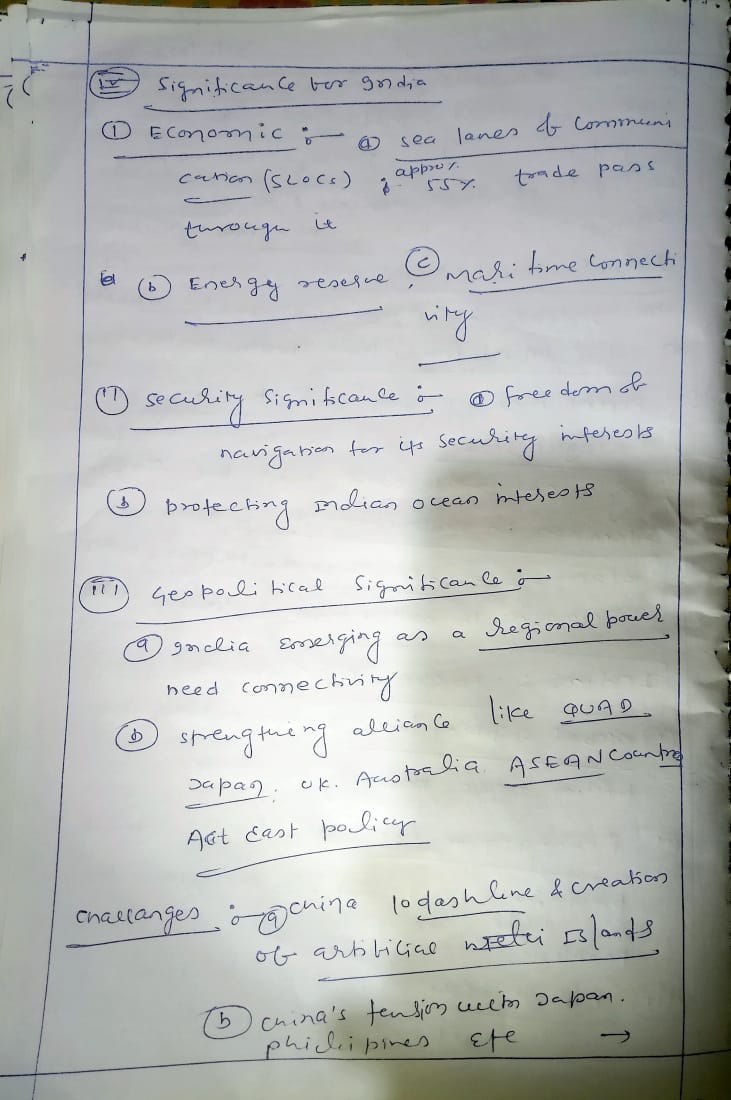 IV Significance for India
① Economic :- ⓐ sea lanes of communi
cation (SLOCs) ; approx. 55% trade pass
through it
ⓑ Energy reserve, ⓒ Maritime connecti
vity
(ii) security significance :- ⓐ freedom of
navigation for its security interests
ⓑ protecting Indian ocean interests
(iii) Geopolitical significance :-
ⓐ India emerging as a regional power
need connectivity
ⓑ strengthning alliance like QUAD
Japan, UK. Australia. ASEAN Country
Act East policy
Challanges :- ⓐ China 10 dash line & creation
of artificial Islands
ⓑ China's tension with Japan.
philipines etc →